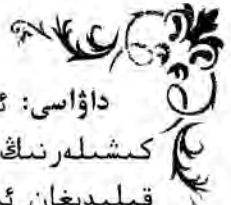 داۋاسى:
كىشىلەرنىڭ
قىلىدىغان